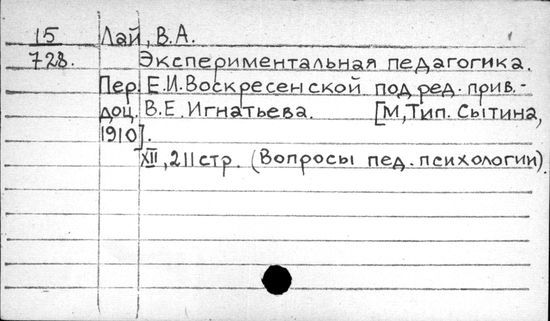 15 Лай, В.А.
728. Экспериментальная педагогика.
Пер. Е.И. Воскресенской под ред. прив.-
доц. В.Е. Игнатьева. [М, Тип. Сытина,
1910].
XII, 211 стр. (Вопросы пед. психологии).